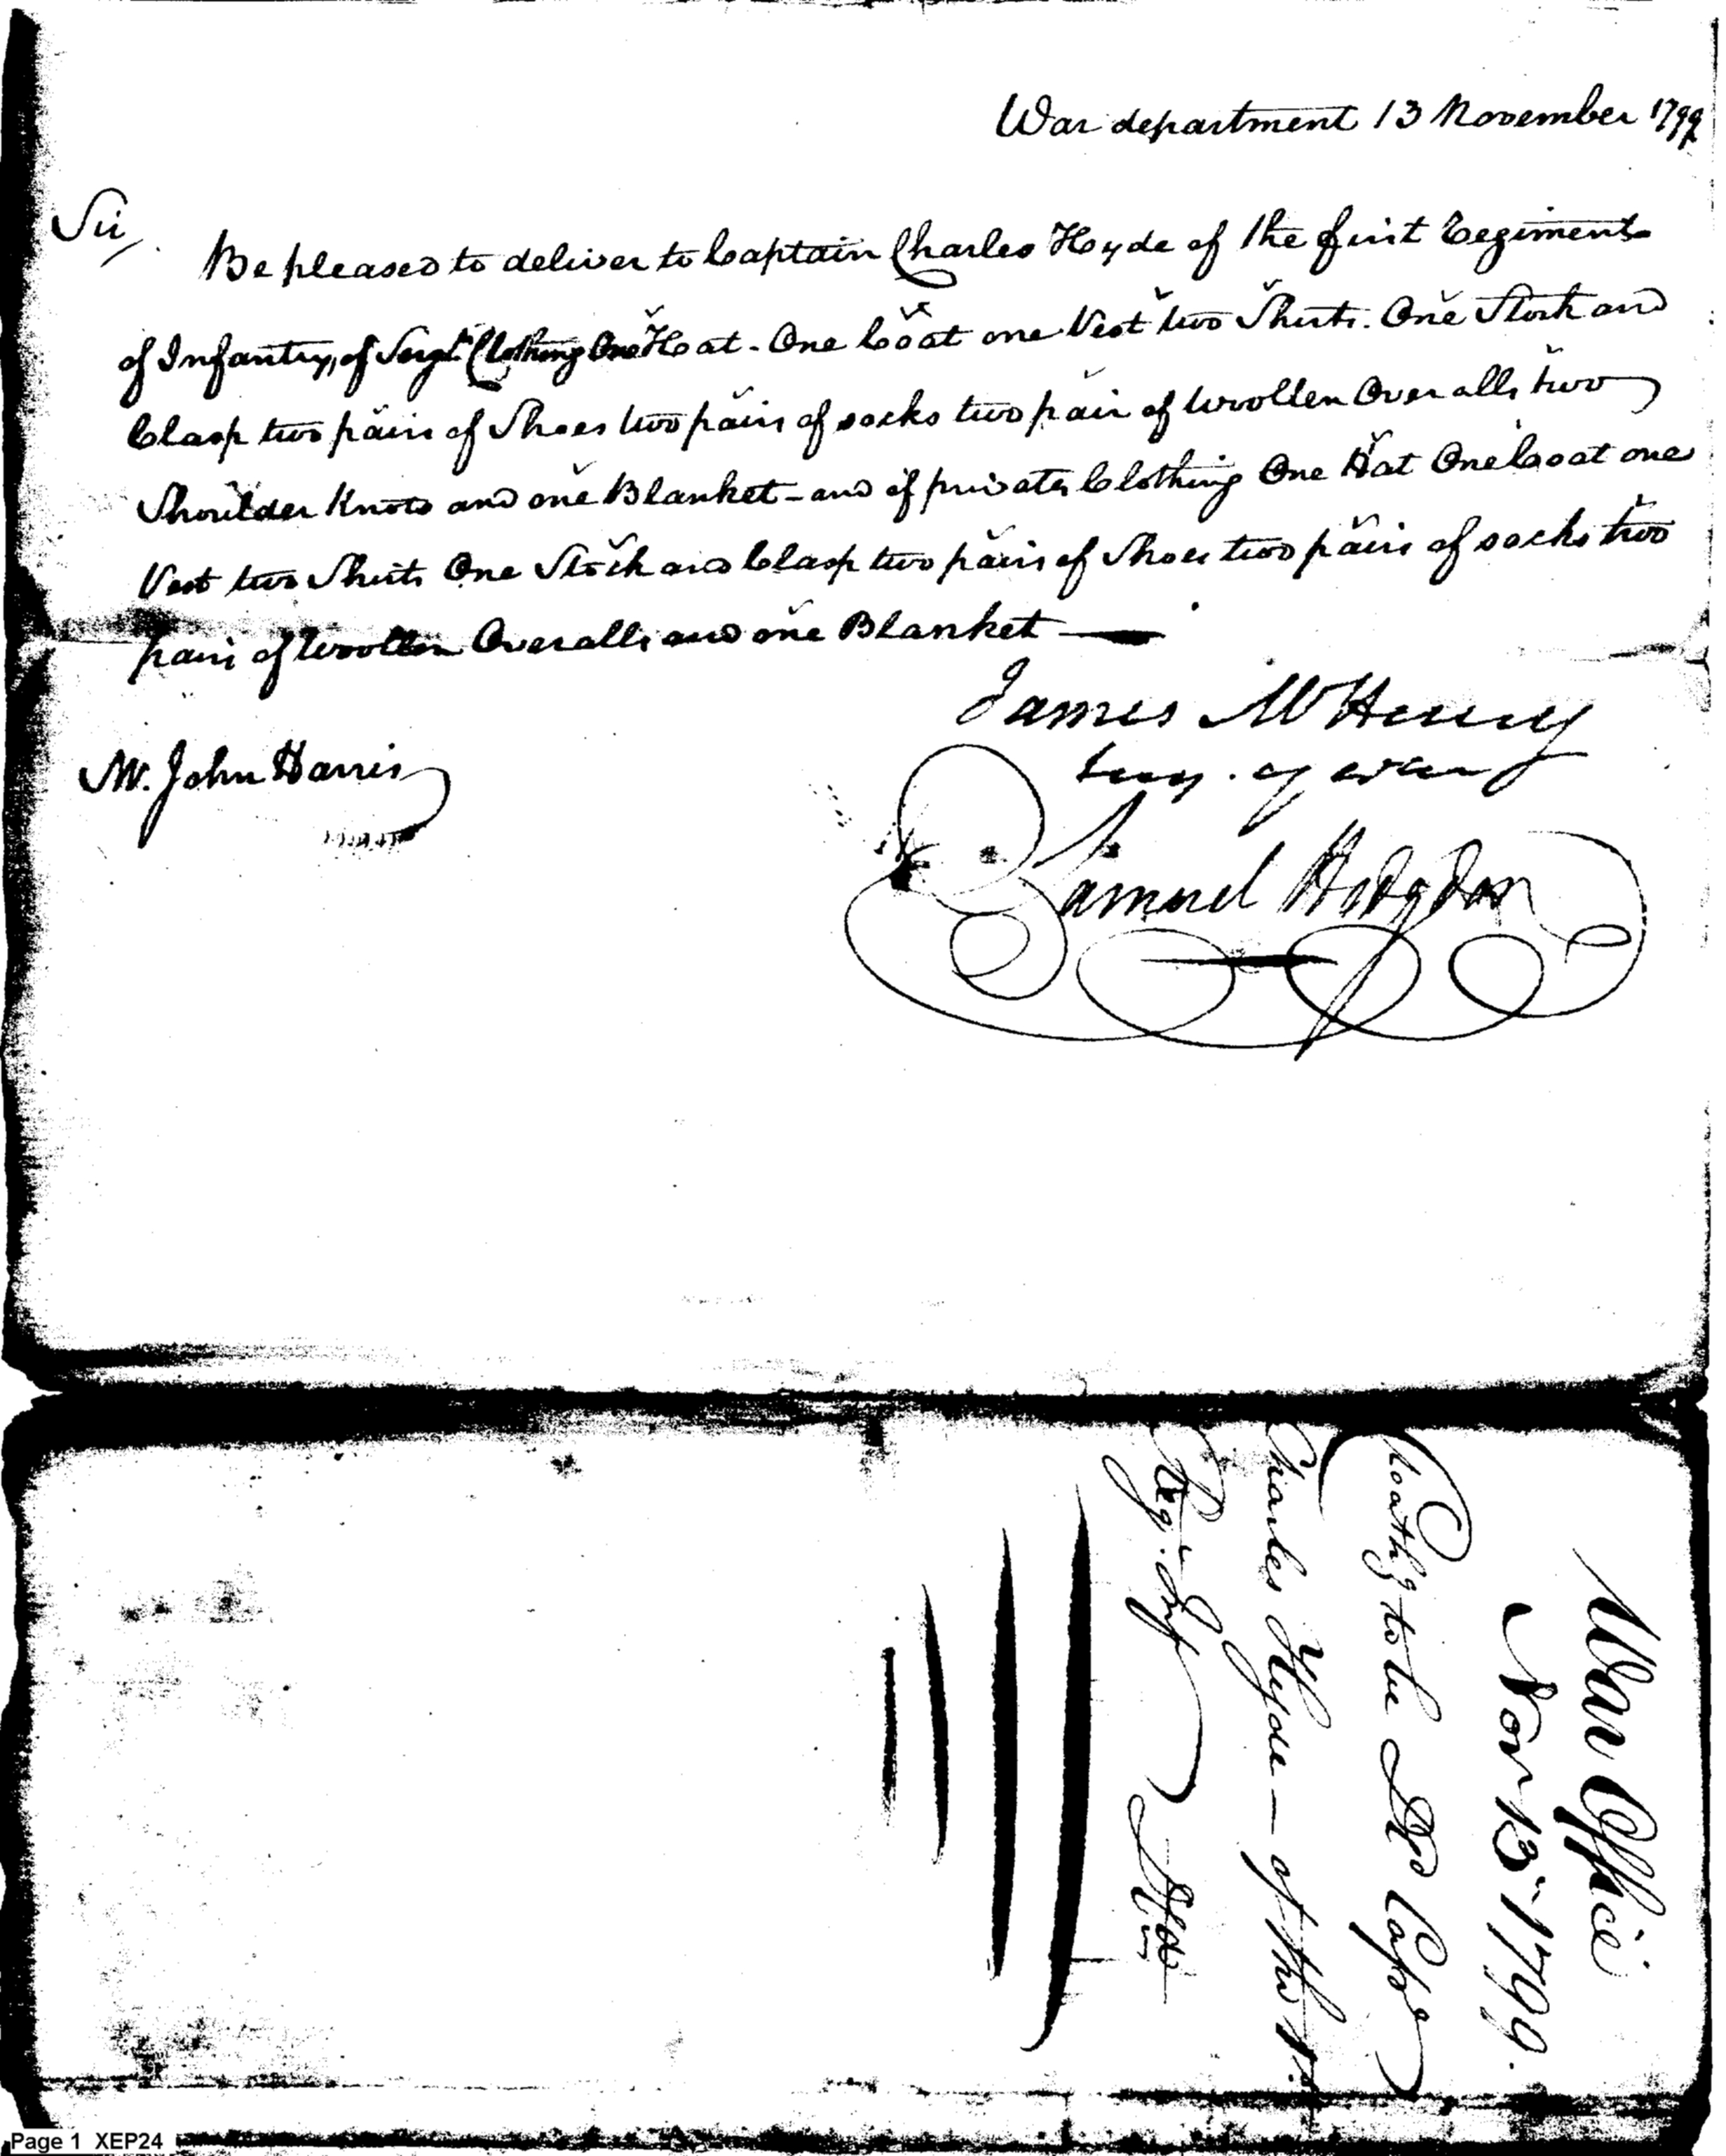 War department 13 November 1799
Sir,
Be pleased to deliver to Captain Charles Hyde of the first Regiment
of Infantry, of Sergts Clothing One Hat - One Coat one Vest two Shirts. One Stock and
Clasp two pairs of Shoes two pairs of socks two pair of Woollen Overalls two
Shoulder Knots and one Blanket - and of privates Clothing One Hat One Coat one
Vest two Shirts One Stock and Clasp two pairs of Shoes two pairs of socks two
pairs of Woollen Overalls and one Blanket —
James McHenry
Secy. of war
Mr. John Harris
Samuel Hodgdon
War Office
Nov 13 1799.
Cloathg to be Dd Capt
Charles Hyde — of the 1st
Regt. Inf
Page 1 XEP24